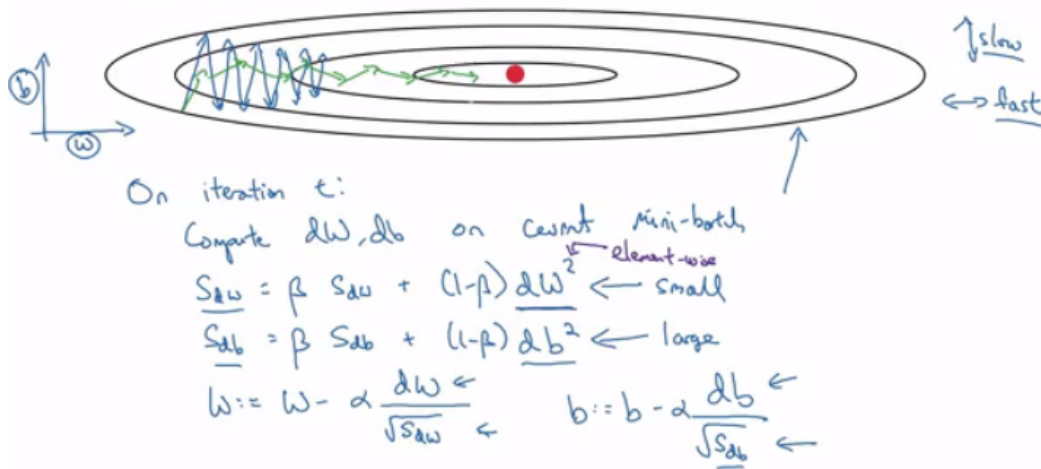 slow
b
fast
w
On iteration t:
Compute dW, db on current mini-batch
element-wise
S_dw = β S_dw + (1-β) dW² ← small
S_db = β S_db + (1-β) db² ← large
W := W - α dW / √S_dw    b := b - α db / √S_db